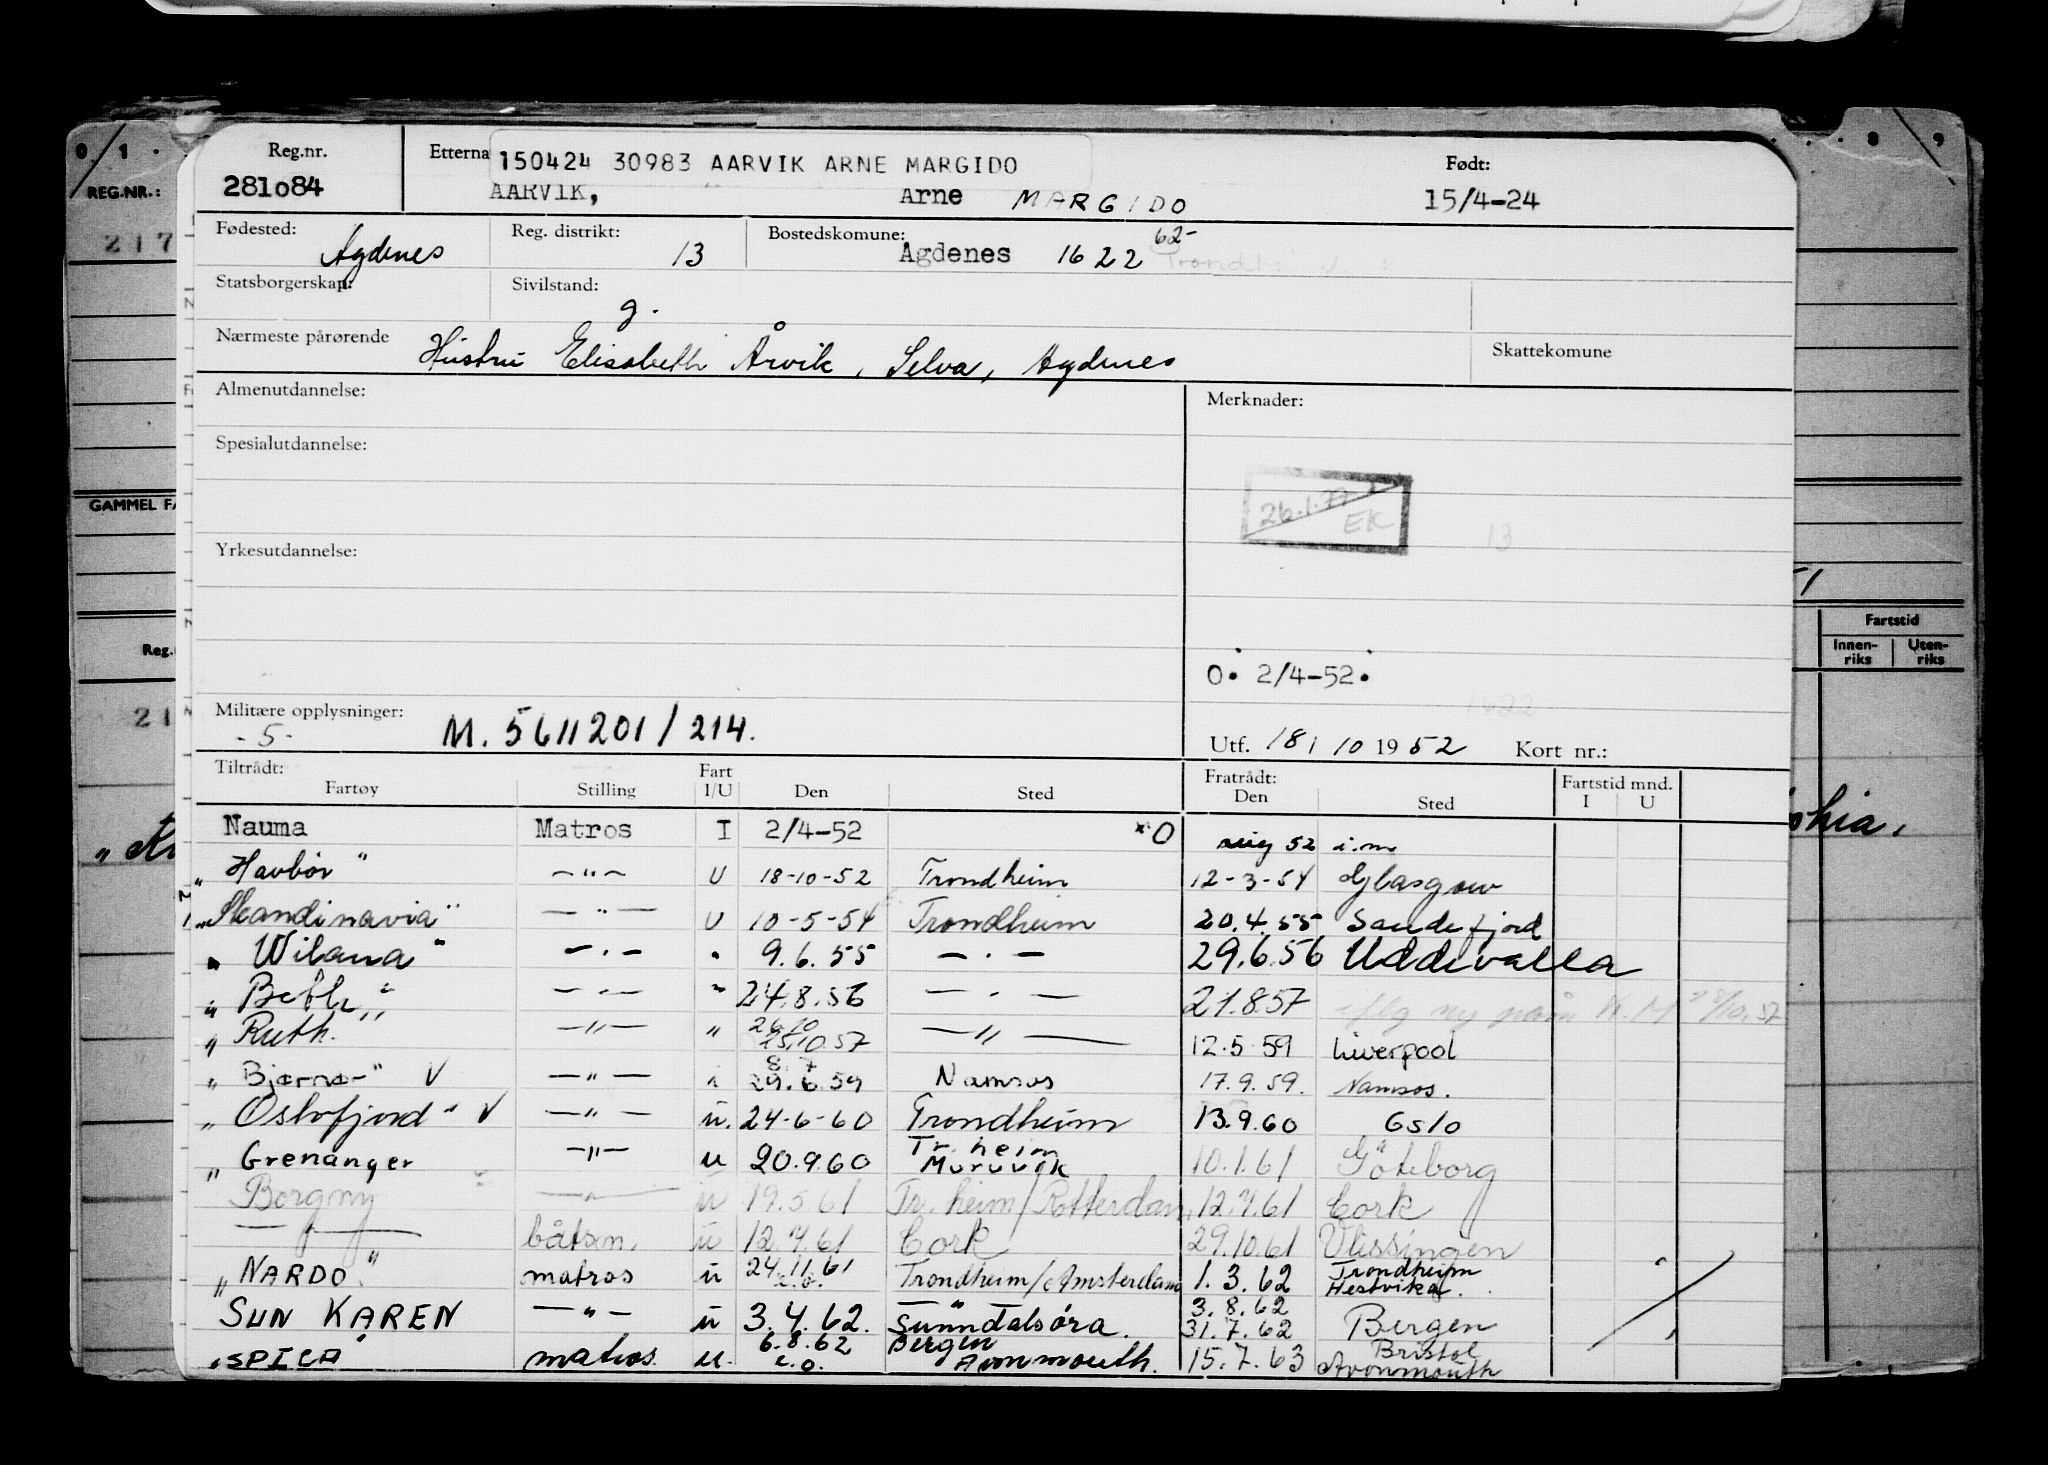 Reg.nr. Etterna 150424 30983 AARVIK ARNE MARGIDO Født:
281084 AARVIK, Arne MARGIDO 15/4-24
Fødested: Agdenes Reg. distrikt: 13 Bostedskommune: Agdenes 1622 62-
Statsborgerskap: Sivilstand: g.
Nærmeste pårørende Hustru Elisabeth Årvik, Selva, Agdenes Skattekomune
Almenutdannelse: Merknader:
Spesialutdannelse:
26.1.77
EK
13
Yrkesutdannelse:
O. 2/4-52.
1622
Militære opplysninger: M. 5611201/214.
-5-
Utf. 18/10 1952 Kort nr.:
Tiltrådt: Fart Fratrådt: Fartstid mnd.
Fartøy Stilling I/U Den Sted Den Sted I U
Nauma Matros I 2/4-52 *O aug 52 i.m
"Havbør" —"— U 18-10-52 Trondheim 12-3-54 Glasgow
"Skandinavia" —"— U 10-5-54 Trondheim 20.4.55 Sandefjord
"Wilana" —"— " 9.6.55 —"— 29.6.56 Uddevalla
"Beth" —"— " 24.8.56 —"— 21.8.57
"Ruth. —"— " 26.10 15.10.57 —"— 12.5.59 Liverpool
"Bjørnø-" V —"— " 8.7 29.6.59 Namsos 17.9.59. Namsos.
"Oslofjord" V —"— u. 24-6-60 Trondheim 13.9.60 Oslo
"Grenanger —"— u 20.9.60 Tr.heim Muruvik 10.1.61 Göteborg
Borgny —"— u 19.5.61 Tr.heim/Rotterdam 12.7.61 Cork
—"— båtsm. u 12.7.61 Cork 29.10.61 Vlissingen
"NARDO" matros u 24.11.61 e.o. Trondheim/Amsterdam 1.3.62 Trondheim Hestvika.
SUN KAREN —"— u 3.4.62. Sunndalsøra. 3.8.62 31.7.62 Bergen
"SPICA matros. u. 6.8.62 e.o. Bergen Avonmouth. 15.7.63 Bristol Avonmouth
REG.NR.:
217
GAMMEL FA
Reg.
21
0 1 8 9
51
Fartstid
Innen-riks Uten-riks
phia.